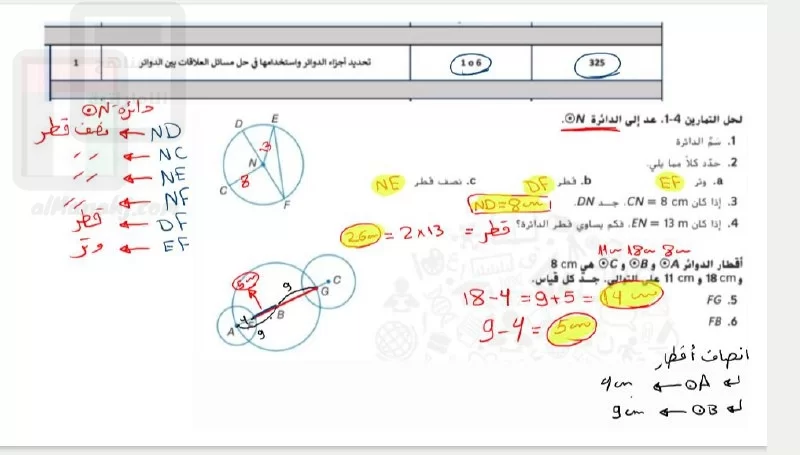 1 تحديد أجزاء الدوائر واستخدامها في حل مسائل العلاقات بين الدوائر 1 o 6 325
لحل التمارين 4-1، عد إلى الدائرة ⊙N.
1. سمّ الدائرة
2. حدّد كلاً مما يلي.
a. وتر EF b. قطر DF c. نصف قطر NE
3. إذا كان CN = 8 cm، جد DN. ND = 8 cm
4. إذا كان EN = 13 m، فكم يساوي قطر الدائرة؟ قطر = 2×13 = 26cm
11cm 18cm 8cm
أقطار الدوائر ⊙A و ⊙B و ⊙C هي 8 cm
و 18 cm و 11 cm على التوالي. جد كل قياس.
5. FG 18-4 = 9+5 = 14 cm
6. FB 9-4 = 5cm
انصاف أقطار
⊙A ← 4cm
⊙B ← 9cm
دائرة ⊙N
ND ← نصف قطر
NC ← //
NE ← //
NF ← //
DF ← قطر
EF ← وتر
D
E
3
N
8
C
F
5cm
9
C
G
4
B
A
9